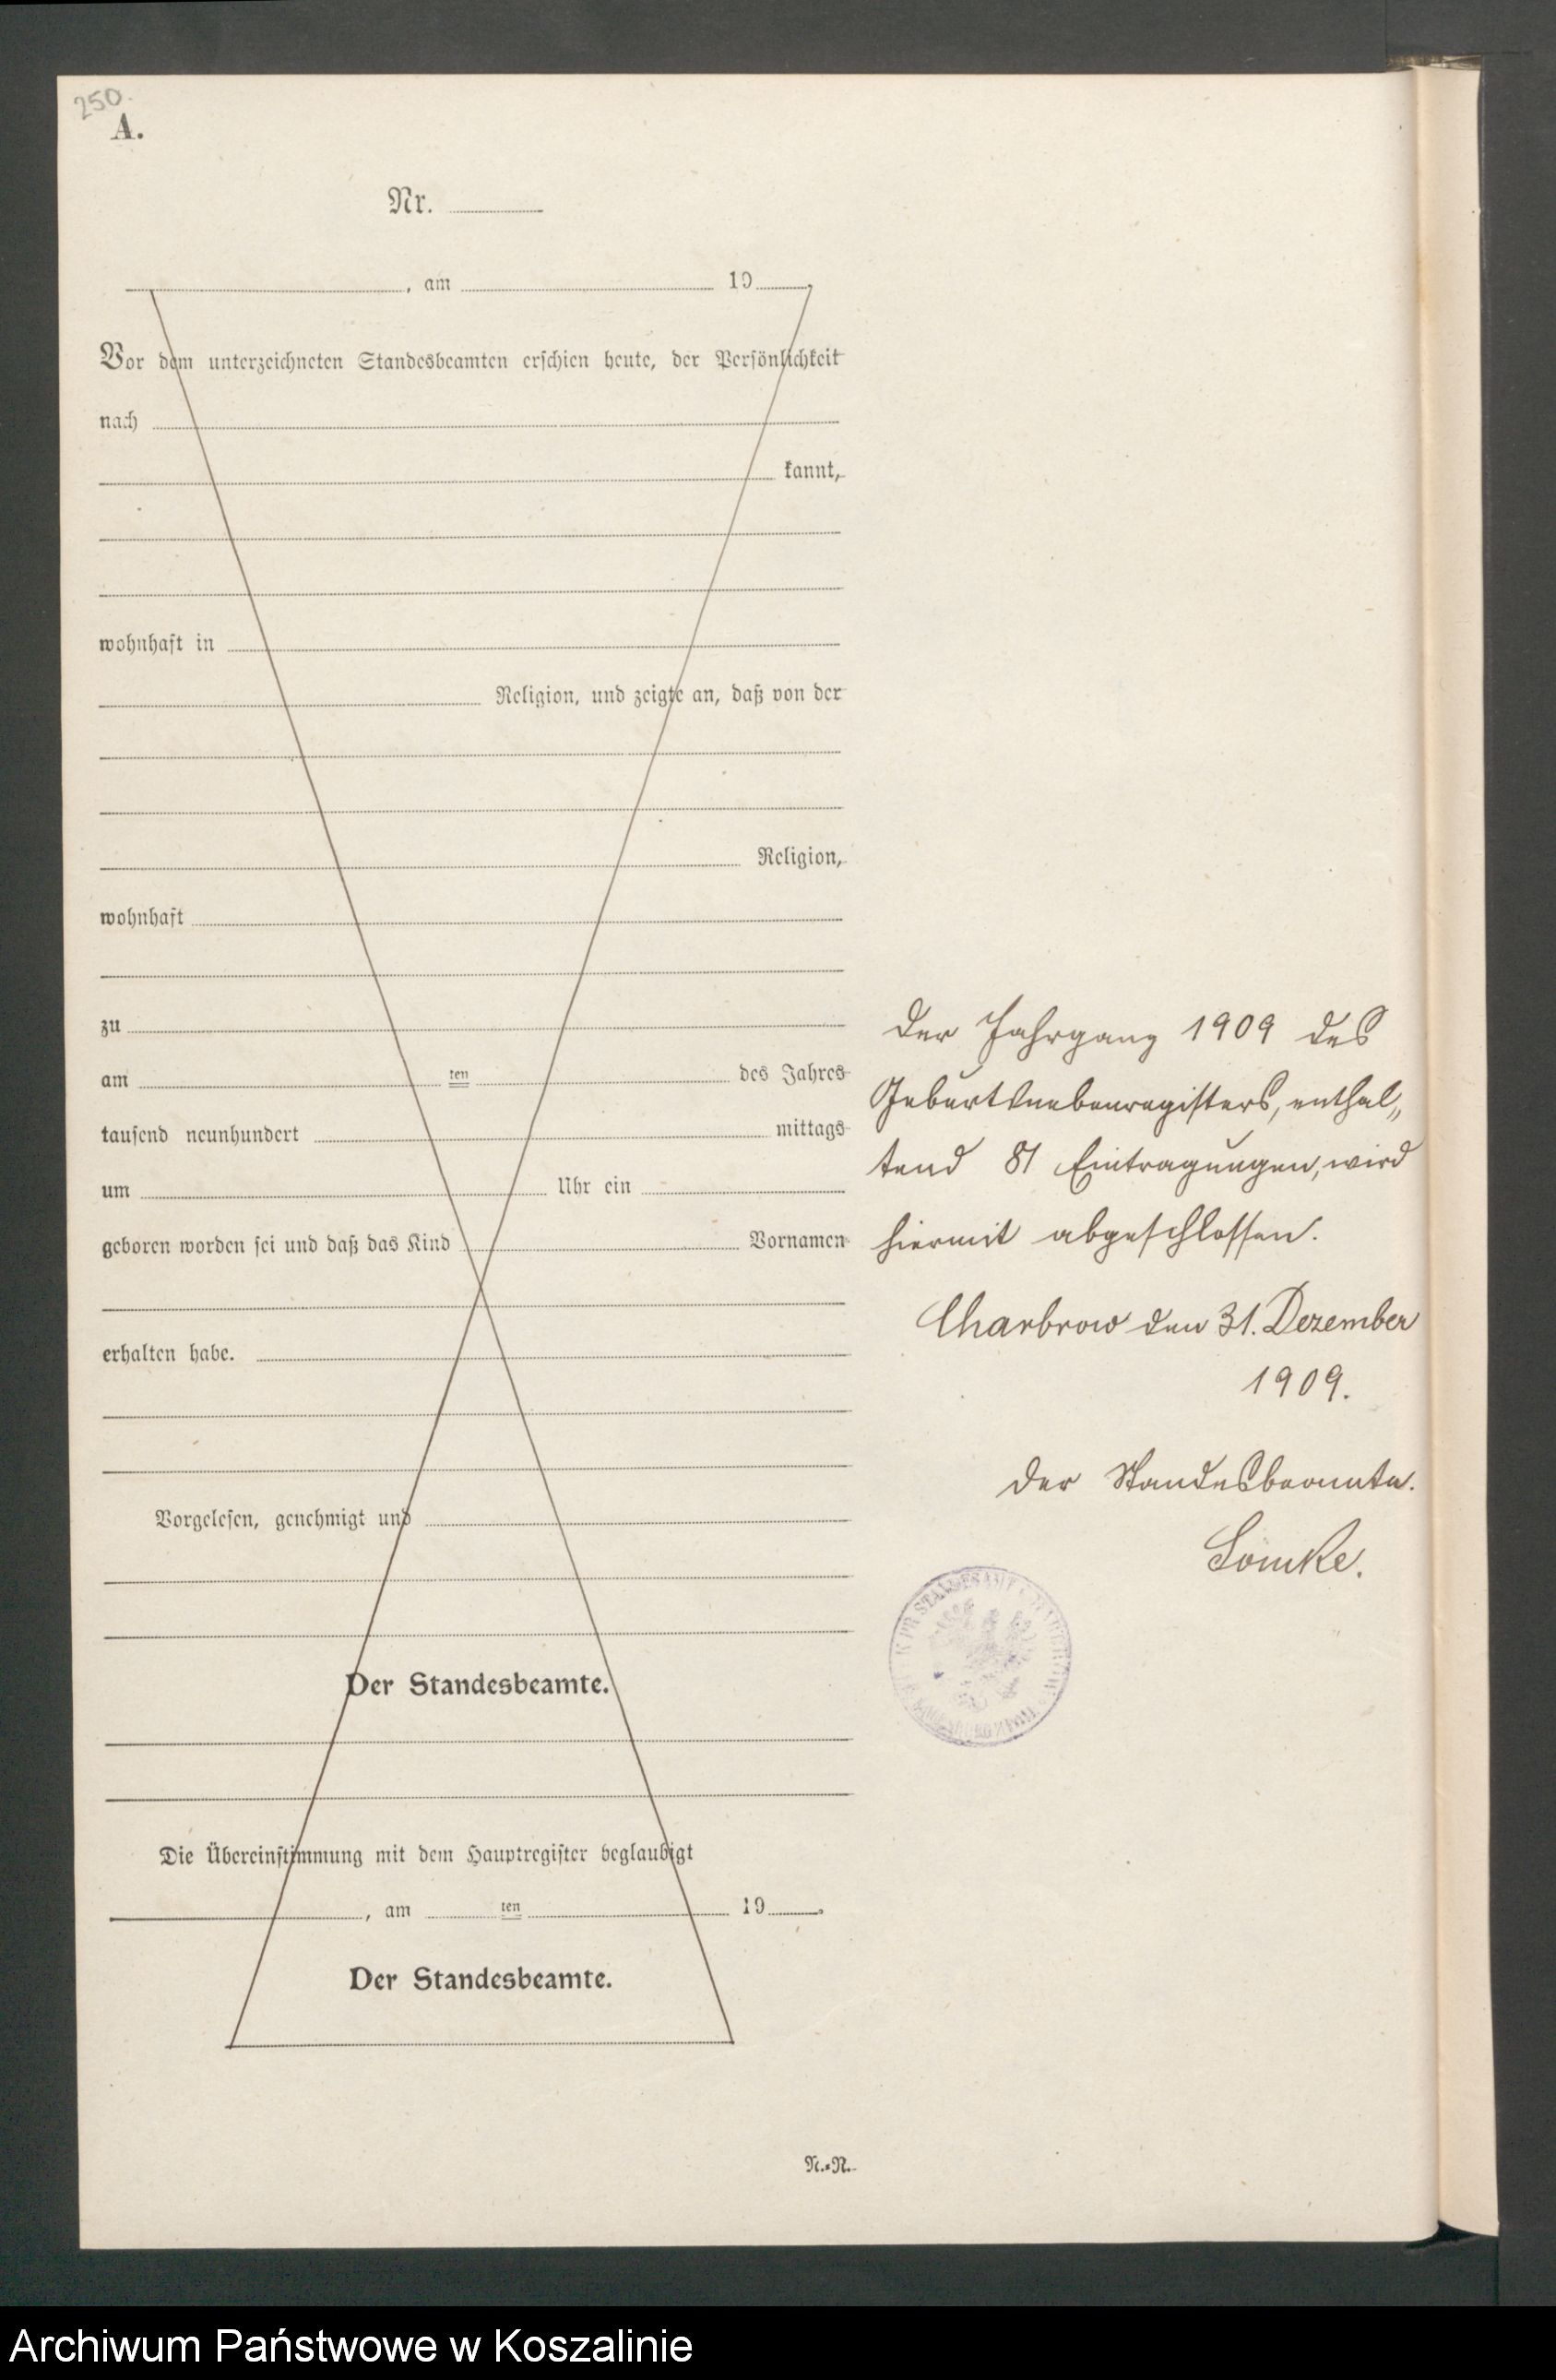 250.
A.
Nr.
, am 19
Vor dem unterzeichneten Standesbeamten erschien heute, der Persönlichkeit
nach
kannt,
wohnhaft in
Religion, und zeigte an, daß von der
Religion,
wohnhaft
zu
am ten des Jahres
tausend neunhundert mittags
um Uhr ein
geboren worden sei und daß das Kind Vornamen
erhalten habe.
Vorgelesen, genehmigt und
Der Standesbeamte.
Die Übereinstimmung mit dem Hauptregister beglaubigt
, am ten 19 .
Der Standesbeamte.
N.=R.
Der Jahrgang 1909 des
Geburtsnebenregisters, enthal„
tend 81 Eintragungen, wird
hiermit abgeschlossen.
Charbrow den 31. Dezember
1909.
Der Standesbeamte.
PR STANDESAMT
Archiwum Państwowe w Koszalinie